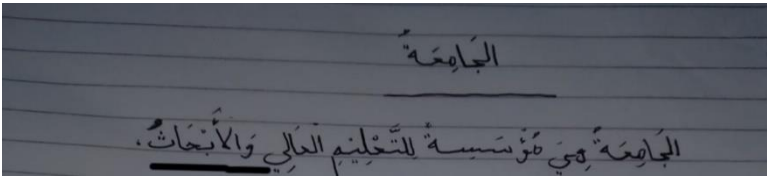 الجَامِعَةُ
الجَامِعَةُ هِيَ مُؤَسَسِةُ لِلتَّعْلِيْمِ العَالِي وَالأَبْحَاثُ.